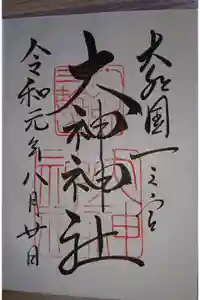 大和国一之宮
大神神社
令和元年八月廿日